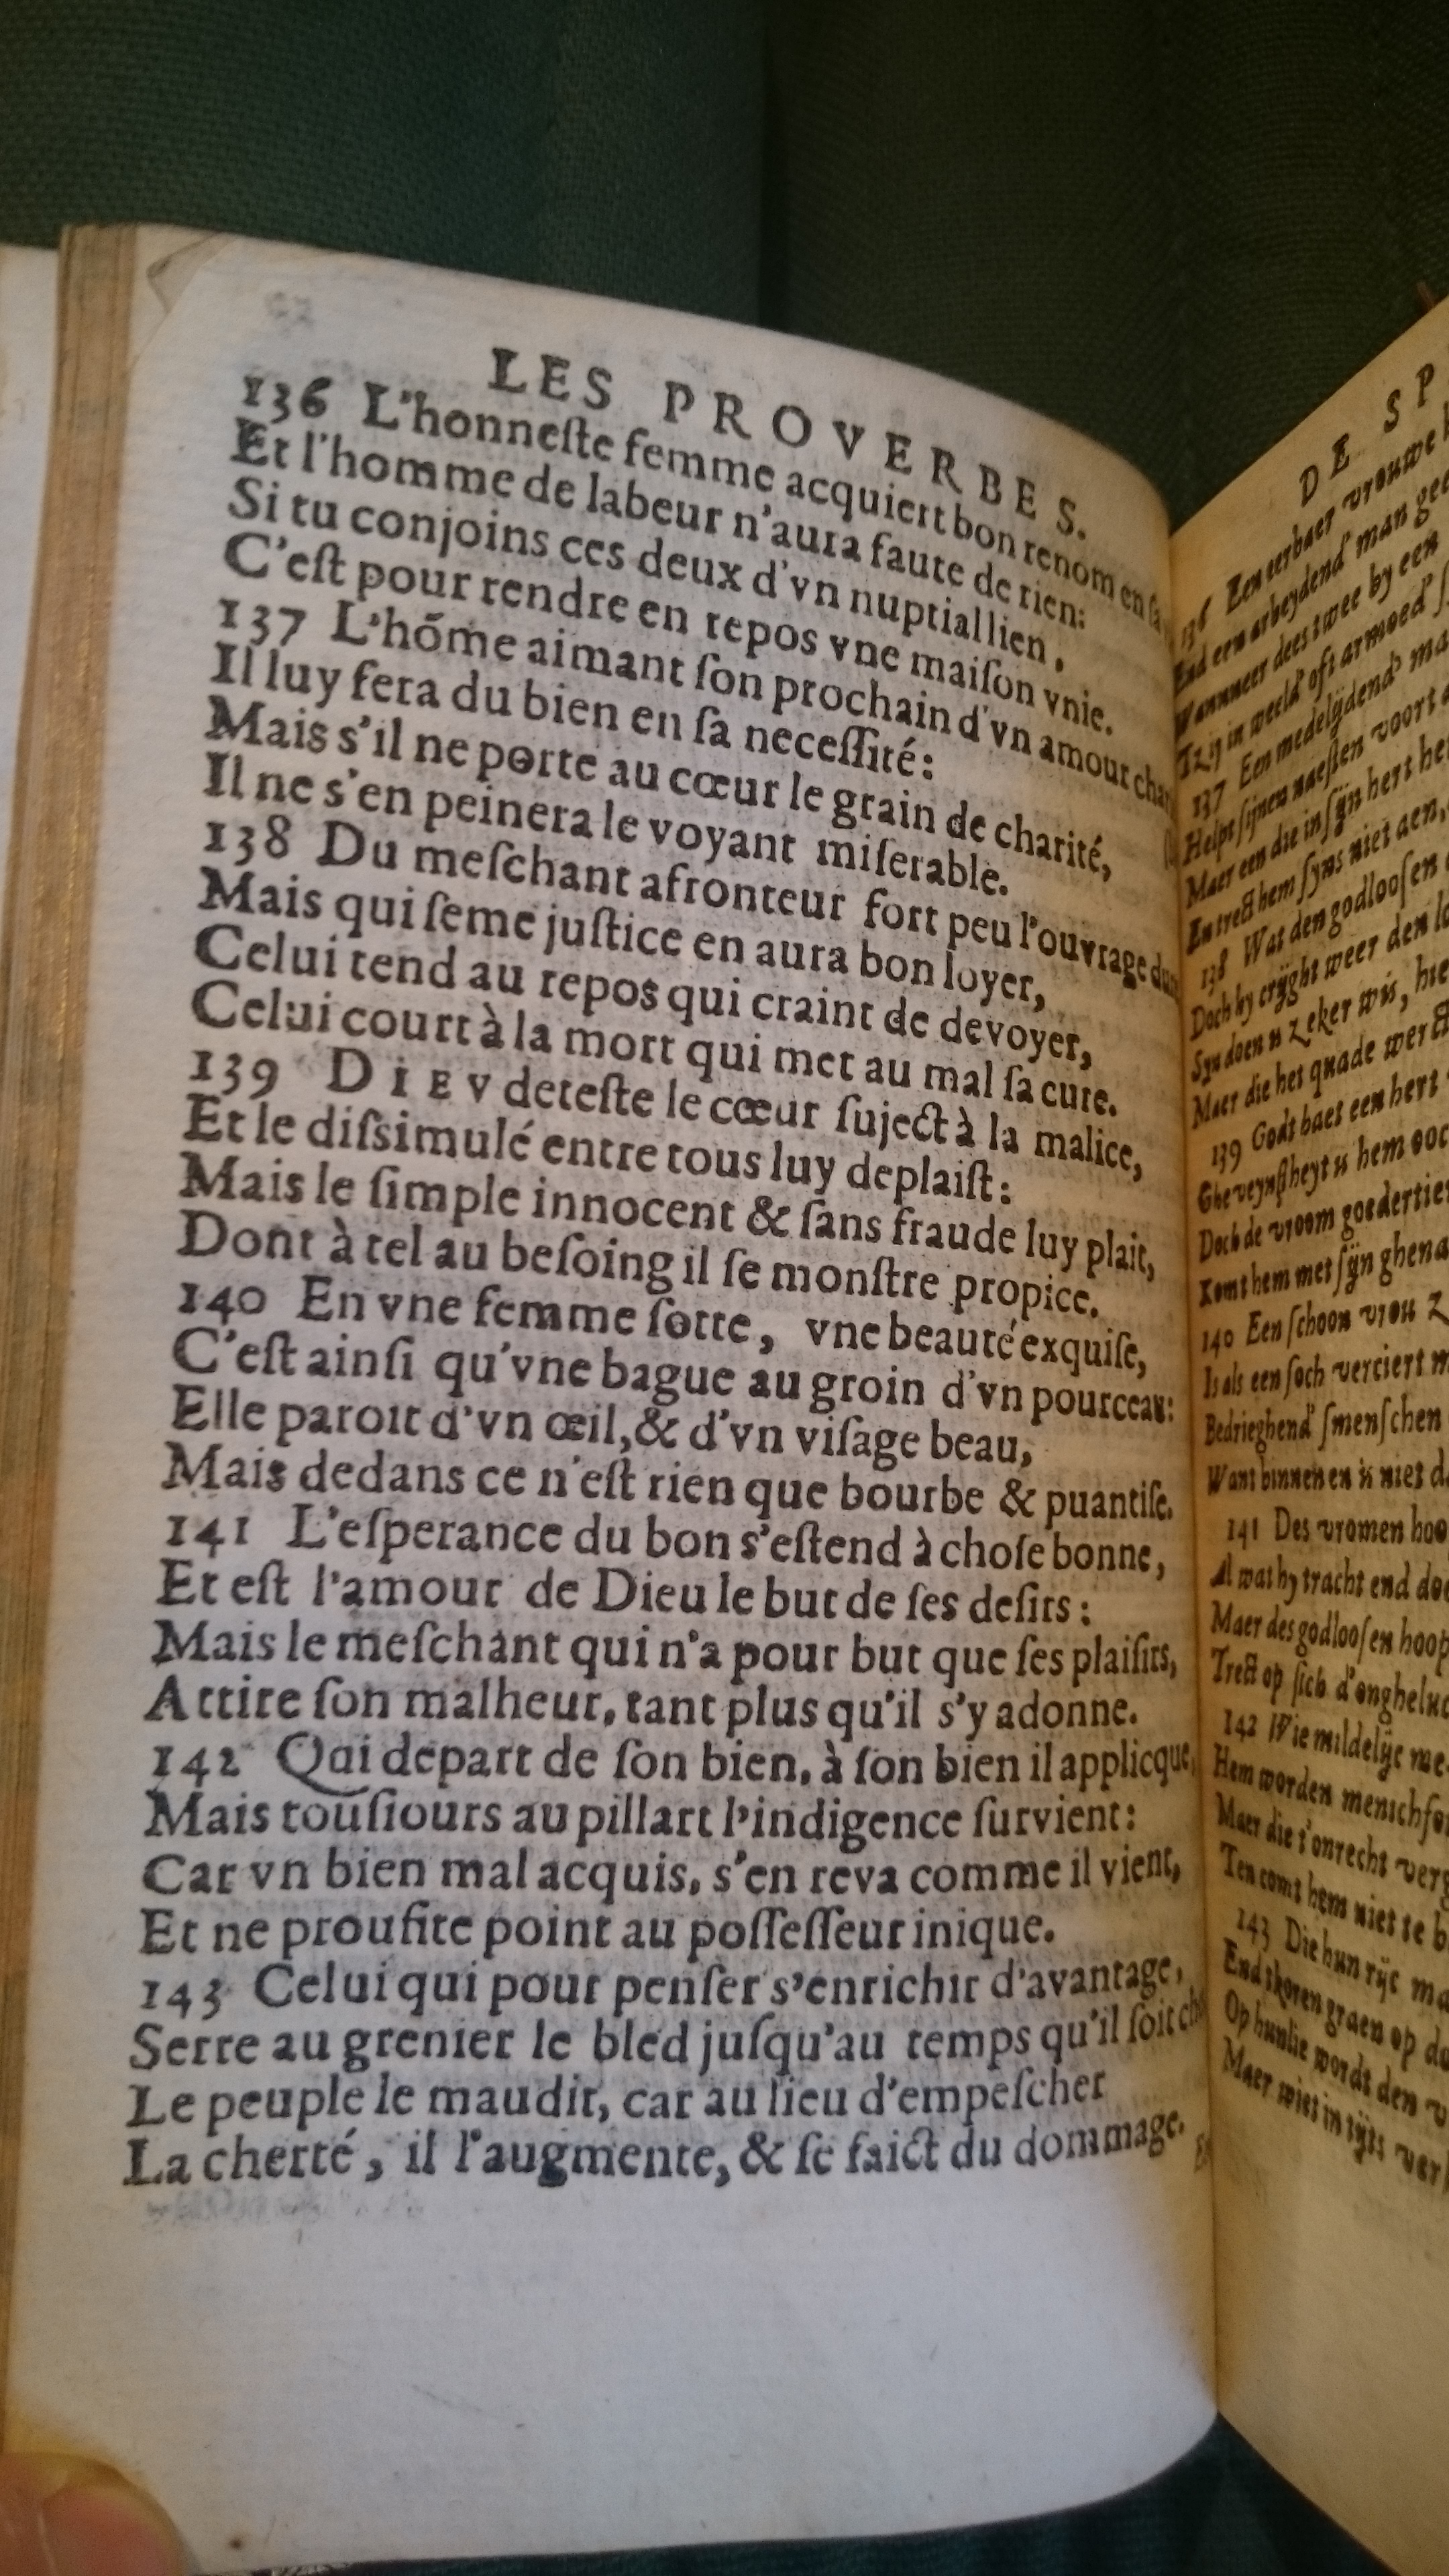 LES PROVERBES.
136 L'honneſte femme acquiert bon renom en
Et l'homme de labeur n'aura faute de rien:
Si tu conjoins ces deux d'vn nuptial lien,
C'eſt pour rendre en repos vne maiſon vnie.
137 L'hõme aimant ſon prochain d'vn amour
Il luy fera du bien en ſa neceſſité:
Mais s'il ne porte au cœur le grain de charité,
Il ne s'en peinera le voyant miſerable.
138 Du meſchant afronteur fort peu l'ouvrage
Mais qui ſeme juſtice en aura bon loyer,
Celui tend au repos qui craint de devoyer,
Celui court à la mort qui met au mal ſa cure.
139 DIEV deteſte le cœur ſuject à la malice,
Et le diſsimulé entre tous luy deplaiſt:
Mais le ſimple innocent & ſans fraude luy plait,
Dont à tel au beſoing il ſe monſtre propice.
140 En vne femme ſotte, vne beauté exquiſe,
C'eſt ainſi qu'vne bague au groin d'vn pourceau:
Elle paroit d'vn œil, & d'vn viſage beau,
Mais dedans ce n'eſt rien que bourbe & puantiſe.
141 L'eſperance du bon s'eſtend à choſe bonne,
Et eſt l'amour de Dieu le but de ſes deſirs:
Mais le meſchant qui n'a pour but que ſes plaiſirs,
Attire ſon malheur, tant plus qu'il s'y adonne.
142 Qui depart de ſon bien, à ſon bien il applicque,
Mais touſiours au pillart l'indigence ſurvient:
Car vn bien mal acquis, s'en reva comme il vient,
Et ne proufite point au poſſeſſeur inique.
143 Celui qui pour penſer s'enrichir d'avantage,
Serre au grenier le bled juſqu'au temps qu'il ſoit
Le peuple le maudit, car au lieu d'empeſcher
La cherté, il l'augmente, & ſe faict du dommage.
DE SP
136 Een eerbaer vrouwe
End een arbeydend' man
Wanneer dees twee by een
Tzy in weeld' oft armoed'
137 Een medelydend'
Helpt ſijnen naeſten voort
Maer een die in ſijn hert
En treckt hem ſyns niet aen,
138 Wat den godlooſen
Doch hy crijght weer den
Syn doen is zeker wis,
Maer die het quade
139 Godt haet een hert
Gheveynſtheyt is hem ooc
Doch de vroom
Komt hem met ſijn
140 Een ſchoon vrou
Is als een ſoch verciert
Bedrieghend' ſmenſchen
Want binnen en is niet
141 Des vromen
Al wat hy tracht end
Maer des godlooſen
Treckt op ſich
142 Wie mildelijc
Hem worden
Maer die t'onrecht
Ten comt hem niet te
143 Die hun rijc
End thoren graen op
Op hunlie wordt den
Maer wiet in tijts